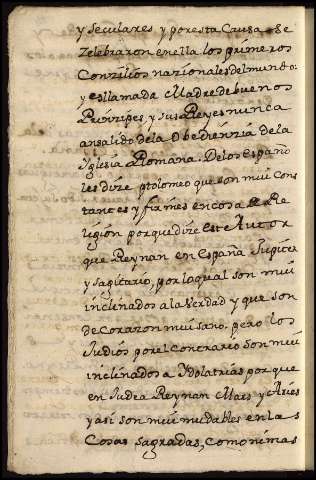 y seculares, y por esta Causa se
Zelebraron en ella los primeros
Conzilios nazionales del mundo:
y es llamada Madre de buenos
Prinzipes, y sus Reyes nunca
an salido de la Obedienzia de la
Iglesia Romana. De los españo
les dize ptolomeo que son mui cons
tantes y firmes en cosa de Re
ligion porque dize este Autor
que Reynan en España Jupiter
y sagitario, por lo qual son mui
inclinados a la verdad y que son
de corazon mui sano. pero los
Judios por el contrario son mui
inclinados a Ydolatrias por que
en Judea Reynan Mars y Aries
y asi son mui mudables en la s
Cosas sagradas, como ni mas